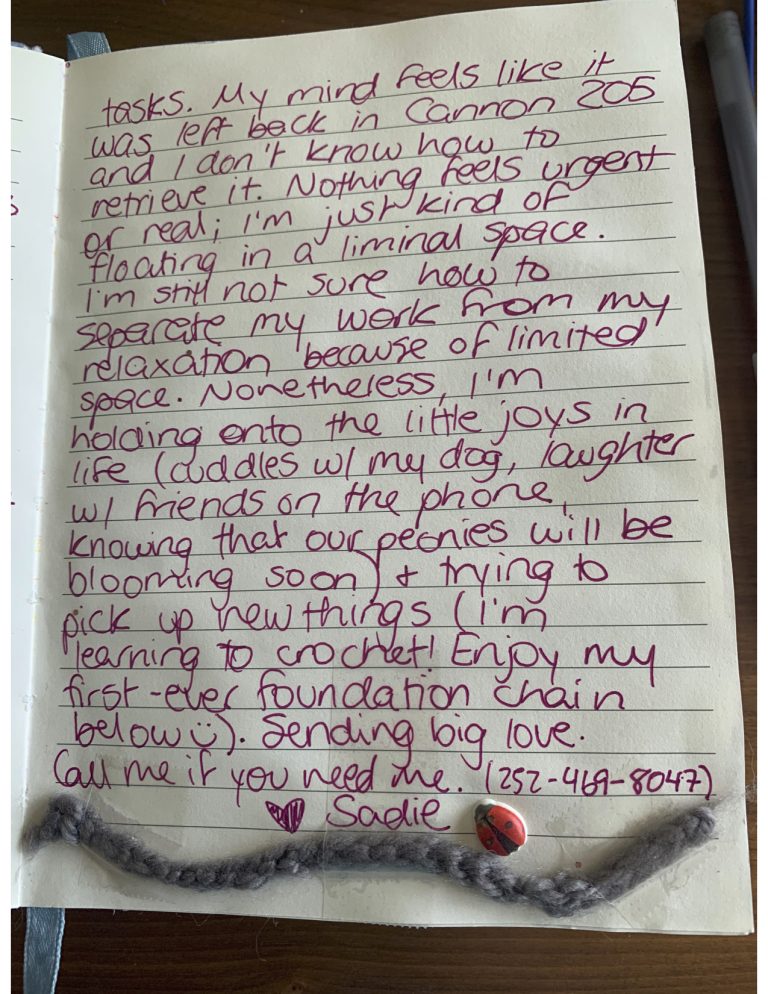 tasks. My mind feels like it
was left back in Cannon 205
and I don't know how to
retrieve it. Nothing feels urgent
or real; I'm just kind of
floating in a liminal space.
I'm still not sure how to
separate my work from my
relaxation because of limited
space. Nonetheless, I'm
holding onto the little joys in
life (cuddles w/ my dog, laughter
w/ friends on the phone,
knowing that our peonies will be
blooming soon) + trying to
pick up new things (I'm
learning to crochet! Enjoy my
first-ever foundation chain
below :)). Sending big love.
Call me if you need me. (252-469-8047)
♥ Sadie